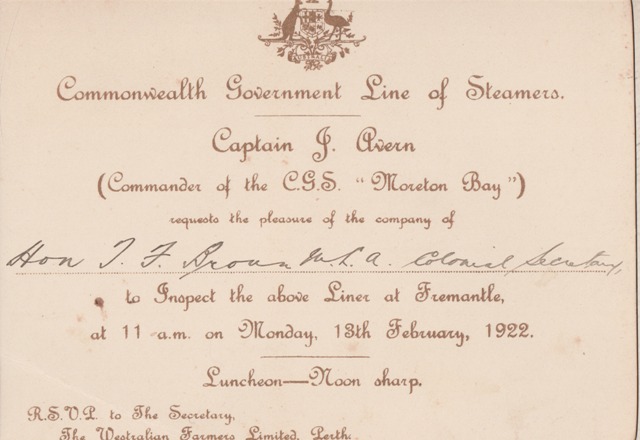 Commonwealth Government Line of Steamers.
Captain J. Avern
(Commander of the C.G.S. "Moreton Bay")
requests the pleasure of the company of
Hon T. F. Broun M.L.A. Colonial Secretary,
to Inspect the above Liner at Fremantle,
at 11 a.m. on Monday, 13th February, 1922.
Luncheon—Noon sharp.
R.S.V.P. to The Secretary,
The Westralian Farmers Limited, Perth.